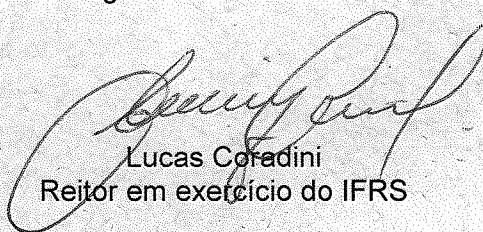 Lucas Coradini
Reitor em exercício do IFRS